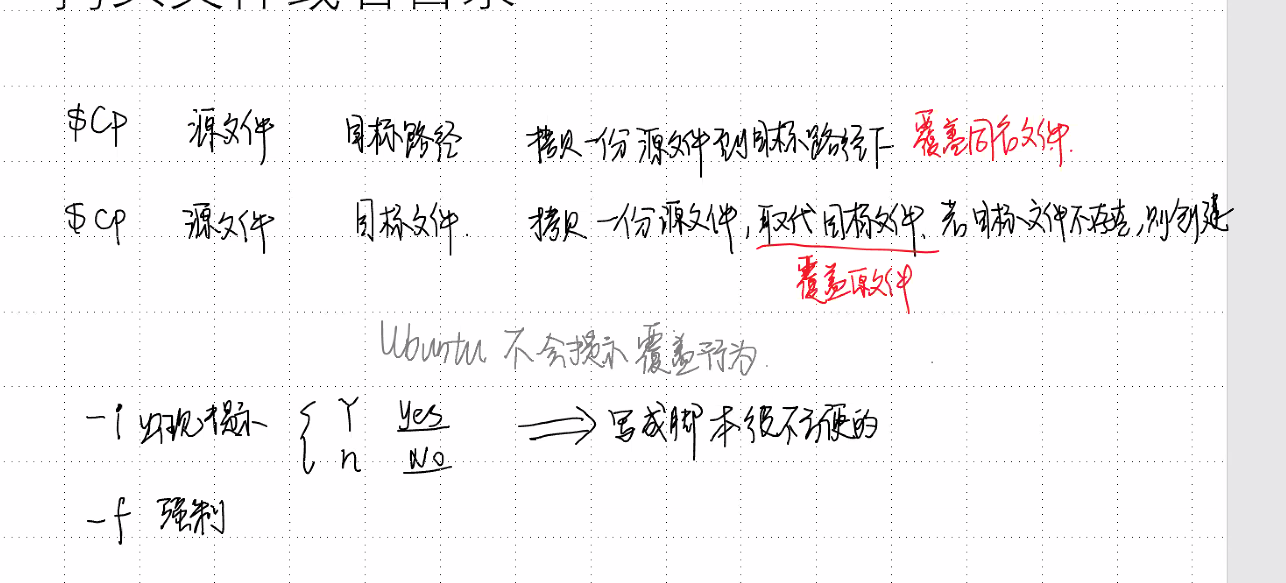 拷贝文件或者目录
$ Cp 源文件 目标路径 拷贝一份源文件到目标路径下 覆盖同名文件.
$ cp 源文件 目标文件. 拷贝一份源文件, 取代目标文件. 若目标文件不存在, 则创建
覆盖原文件
Ubuntu 不会提示覆盖行为.
-i 出现提示 { Y yes ⇒ 写成脚本很不方便的
n No
-f 强制